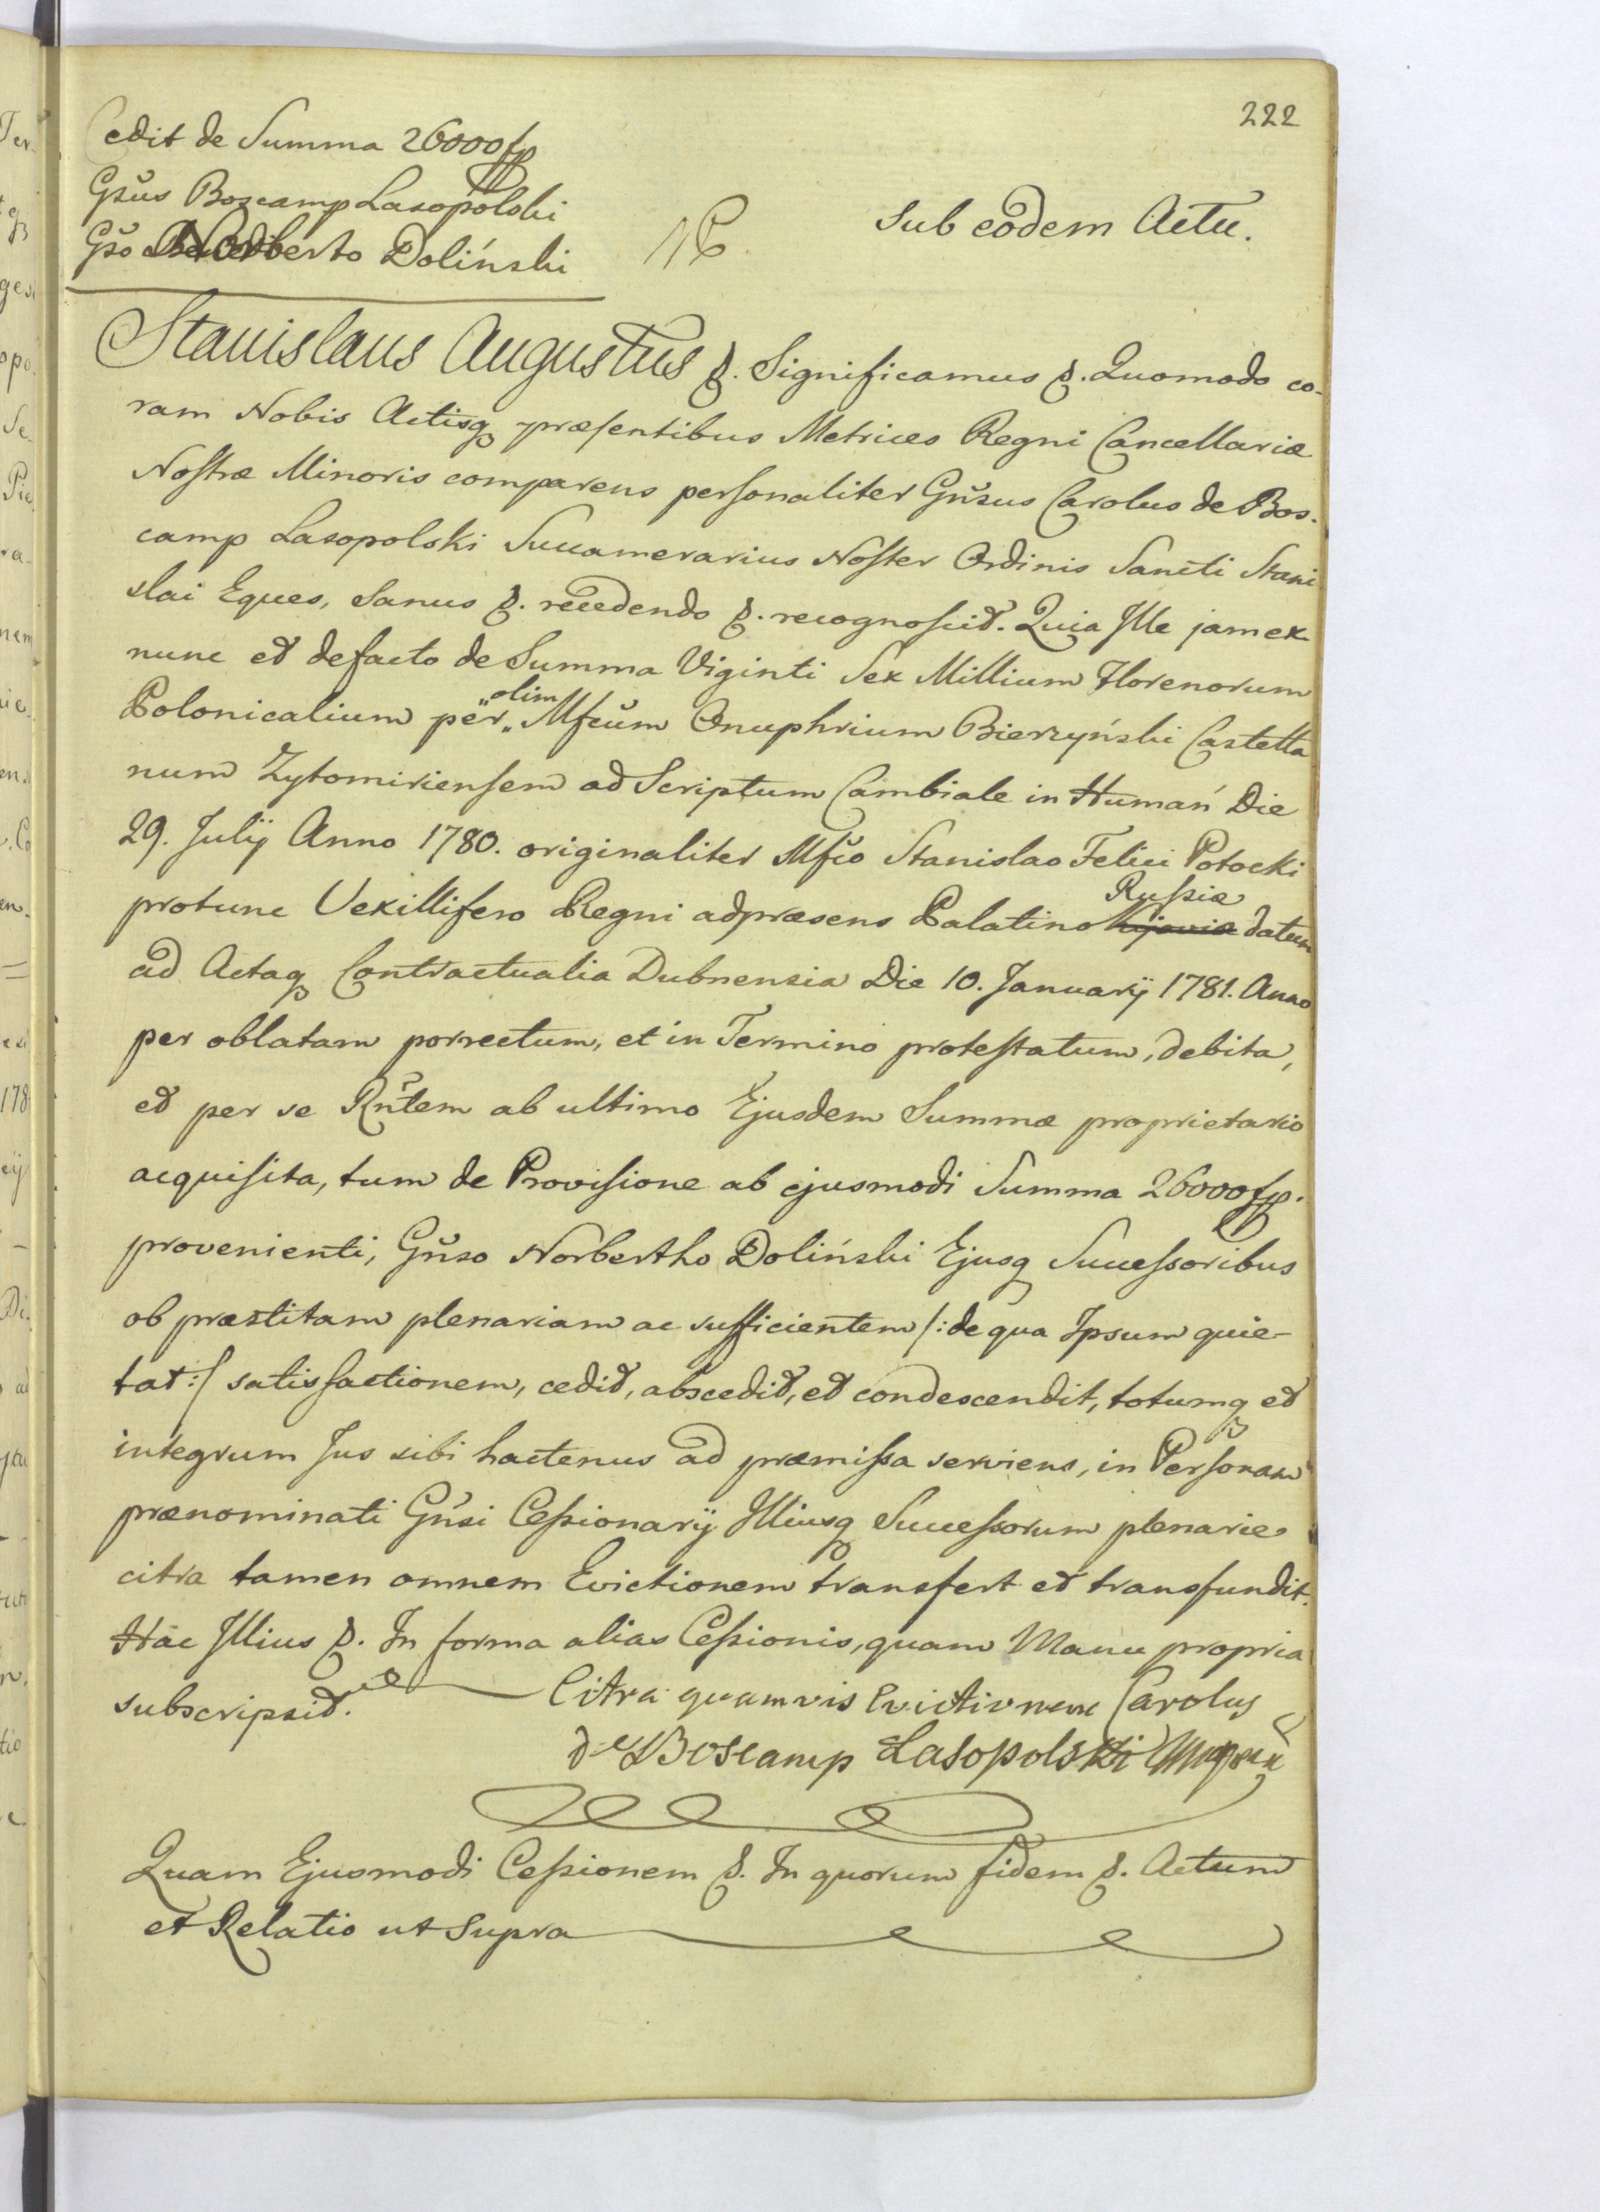 222
Cedit de Summa 26000 fp
Gsus Boscamp Lasopolski
Gso Norberto Doliński
Sub eodem Actu.
Stanislaus Augustus &. Significamus &. Quomodo co-
ram Nobis Actisq præsentibus Metrices Regni Cancellariæ
Nostræ Minoris comparens personaliter Gnsus Carolus de Bos-
camp Lasopolski Succamerarius Noster Ordinis Sancti Stani
slai Eques, Sanus &. recedendo &. recognoscit. Quia Ille jam ex
nunc et defacto de Summa Viginti Sex Millium Florenorum
Polonicalium per olim Mfcum Onuphrium Bierzyński Castella
num Zytomiriensem ad Scriptum Cambiale in Humań Die
29. Julij Anno 1780. originaliter Mfco Stanislao Felici Potocki
protunc Vexillifero Regni adpræsens Palatino Kijoviæ Russiæ datum
ad Actaq Contractualia Dubnensia Die 10. Januarij 1781. Anno
per oblatam porrectum, et in Termino protestatum, debita,
et per se Rntem ab ultimo Ejusdem Summæ proprietario
acquisita, tum de Provisione ab ejusmodi Summa 26000 fp.
provenienti, Gnso Norbertho Doliński Ejusq Successoribus
ob præstitam plenariam ac sufficientem /: de qua Ipsum quie-
tat :/ satisfactionem, cedit, abscedit, et condescendit, totumq et
integrum Jus sibi hactenus ad præmissa serviens, in Personam
prænominati Gnsi Cessionarij Illiusq Successorum plenarie
citra tamen omnem Evictionem transfert et transfundit.
Hac Illius &. In forma alias Cessionis, quam Manu propria
subscripsit. Citra quamvis Evictionem Carolus
de Boscamp Lasopolski Mpria
Quam Ejusmodi Cessionem &. In quorum fidem &. Actum
et Relatio ut Supra